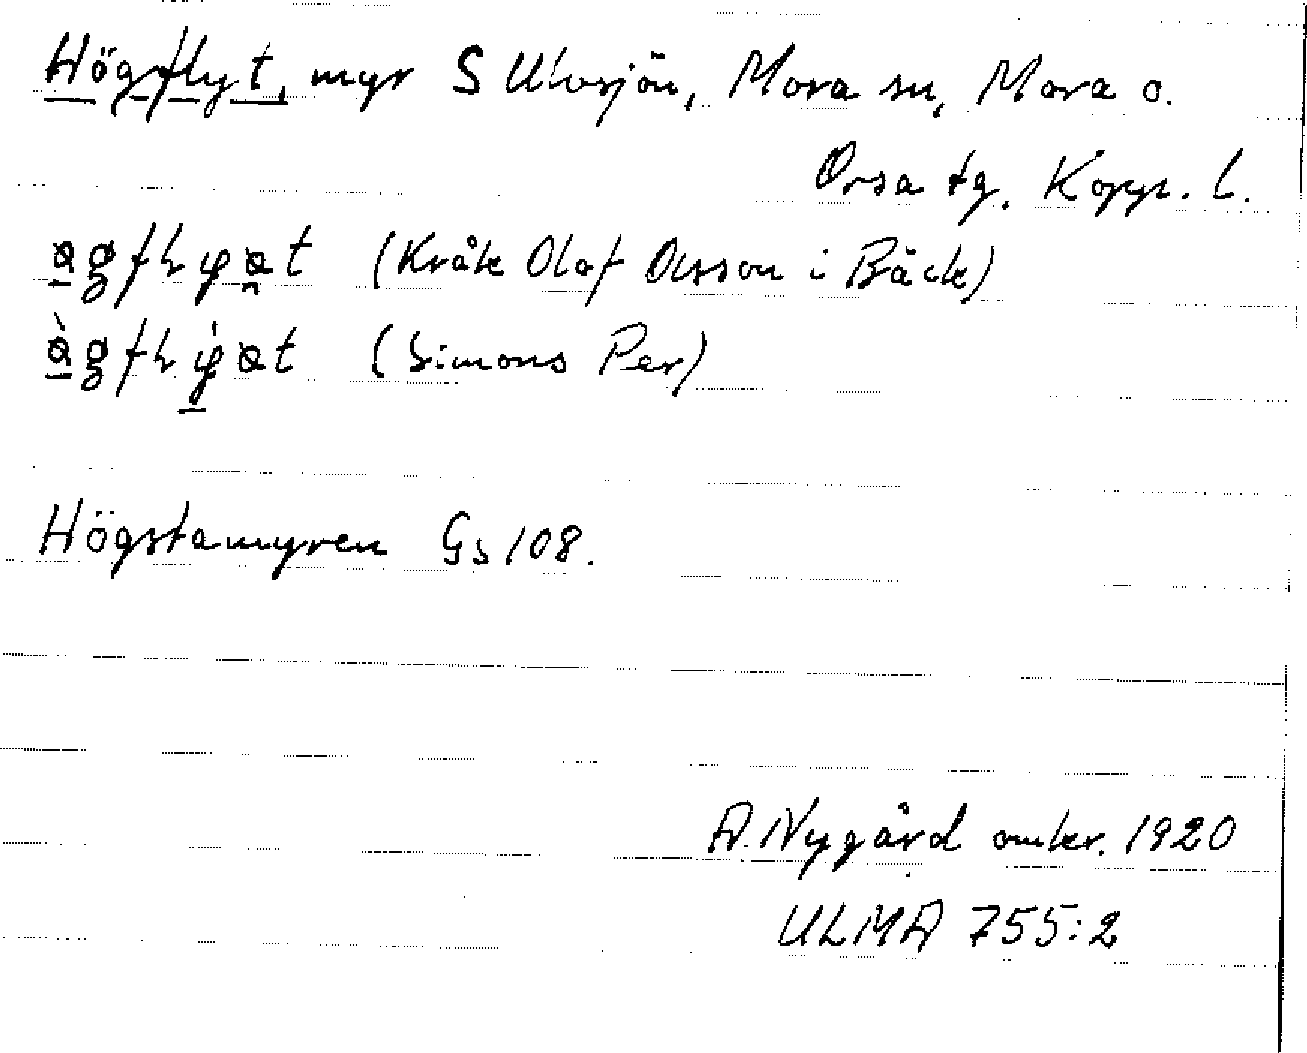 Högflyt, myr S Ulvsjön, Mora sn, Mora o.
Orsa tg. Kopp. l.
(Kråk Olof Olsson i Bäck)
(Simons Per)
Högstamyren Gs 108.
A. Nygård omkr. 1920
ULMA 755:2